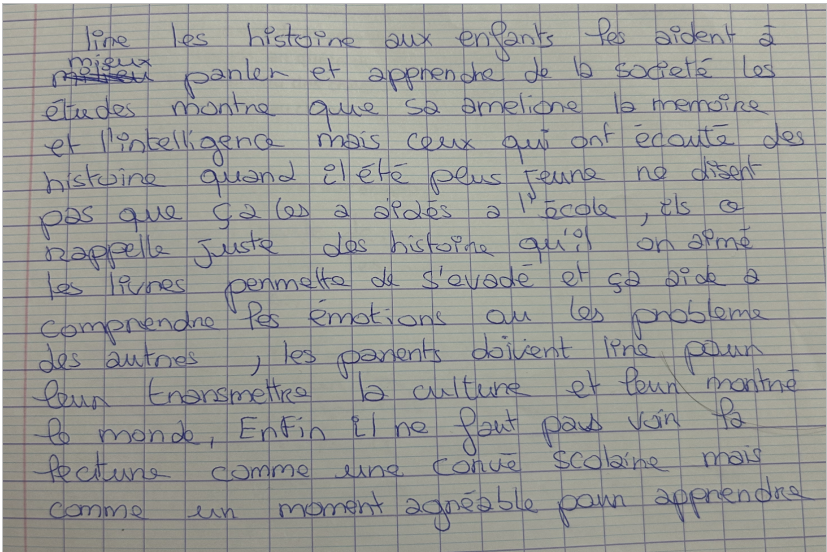 lire les histoire aux enfants les aident à
mieux parler et apprendre de la societé les
études montre que sa ameliore la memoire
et l'intelligence mais ceux qui ont écouté des
histoire quand il été plus jeune ne disent
pas que ça les a aidés a l'école, ils ce
rappelle juste des histoire qu'il on aimé
les livres permette de s'evadé et ça aide a
comprendre les émotions ou les probleme
des autres, les parents doivent lire pour
leur transmettre la culture et leur montré
le monde, Enfin il ne faut pas voir la
lecture comme une corvé scolaire mais
comme un moment agréable pour apprendre